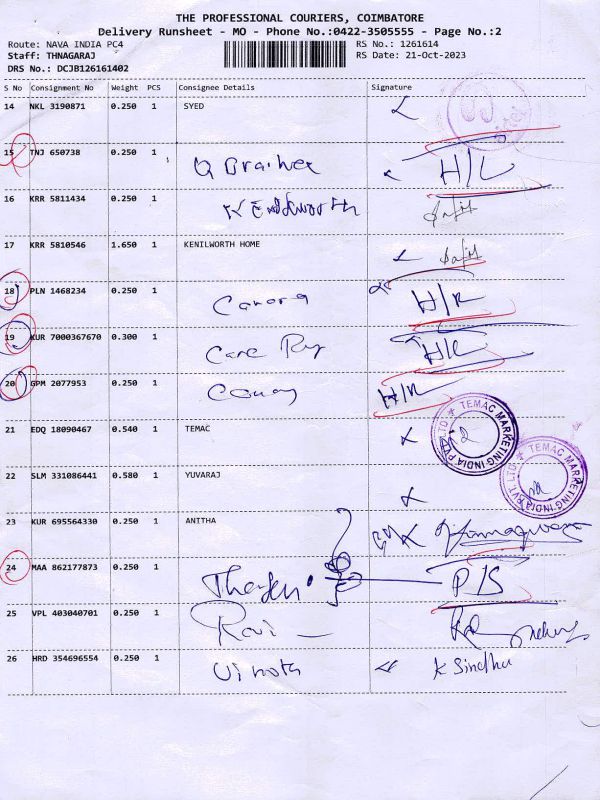 THE PROFESSIONAL COURIERS, COIMBATORE
Delivery Runsheet - MO - Phone No.:0422-3505555 - Page No.:2
Route: NAVA INDIA PC4 RS No.: 1261614
Staff: THNAGARAJ RS Date: 21-Oct-2023
DRS No.: DCJB126161402
S No Consignment No Weight PCS Consignee Details Signature
14 NKL 3190871 0.250 1 SYED
15 TNJ 650738 0.250 1 H/L
16 KRR 5811434 0.250 1
17 KRR 5810546 1.650 1 KENILWORTH HOME
18 PLN 1468234 0.250 1 Canara H/R
19 KUR 7000367670 0.300 1 Care H/R
20 GPM 2077953 0.250 1 H/R
21 EDQ 18090467 0.540 1 TEMAC
TEMAC MARKETING INDIA PVT. LTD
22 SLM 331086441 0.580 1 YUVARAJ
TEMAC MARKETING INDIA PVT. LTD
23 KUR 695564330 0.250 1 ANITHA
24 MAA 862177873 0.250 1 P/S
25 VPL 403040701 0.250 1 Ravi
26 HRD 354696554 0.250 1 Vinoth K Sindhu